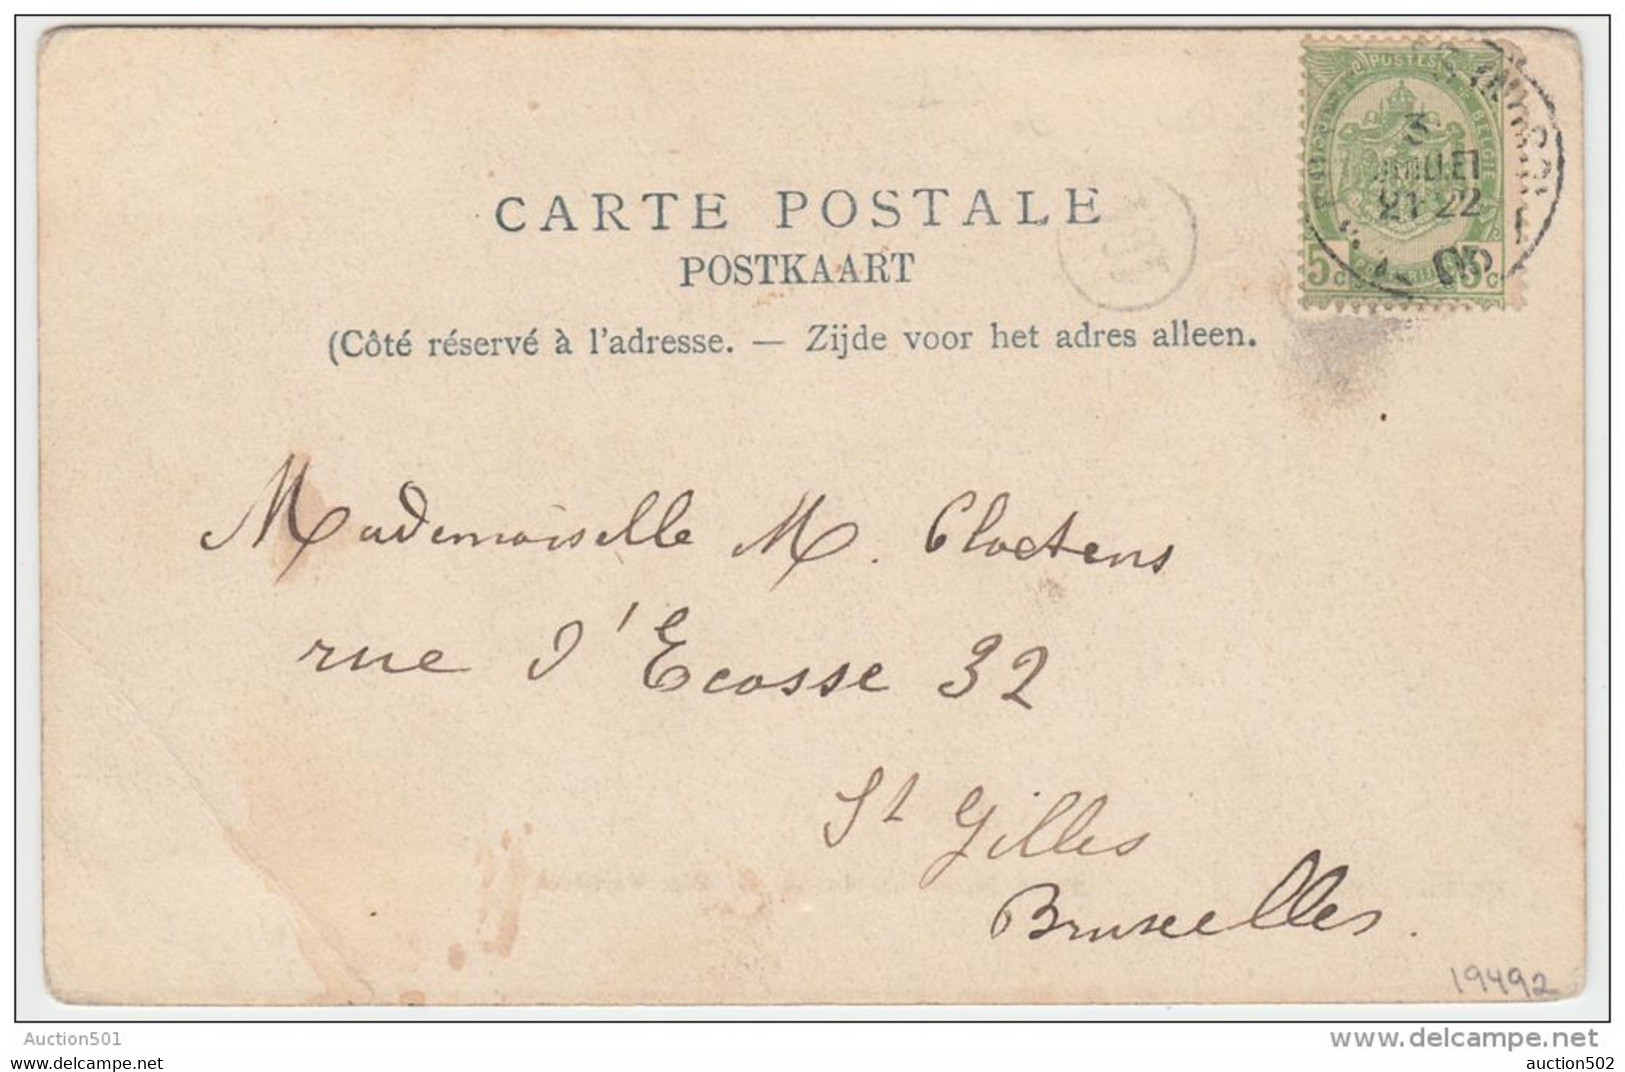 CARTE POSTALE
POSTKAART
(Côté réservé à l'adresse. — Zijde voor het adres alleen.
POSTES
BELGIE
5c 5c
3
JUILLET
21-22
05
Mademoiselle M. Cloetens
rue d'Ecosse 32
St Gilles
Bruxelles.
19492
Auction501
delcampe.net
auction502
auction502